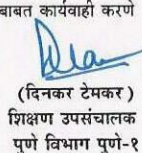 बाबत कार्यवाही करणे
(दिनकर टेमकर)
शिक्षण उपसंचालक
पुणे विभाग पुणे-१